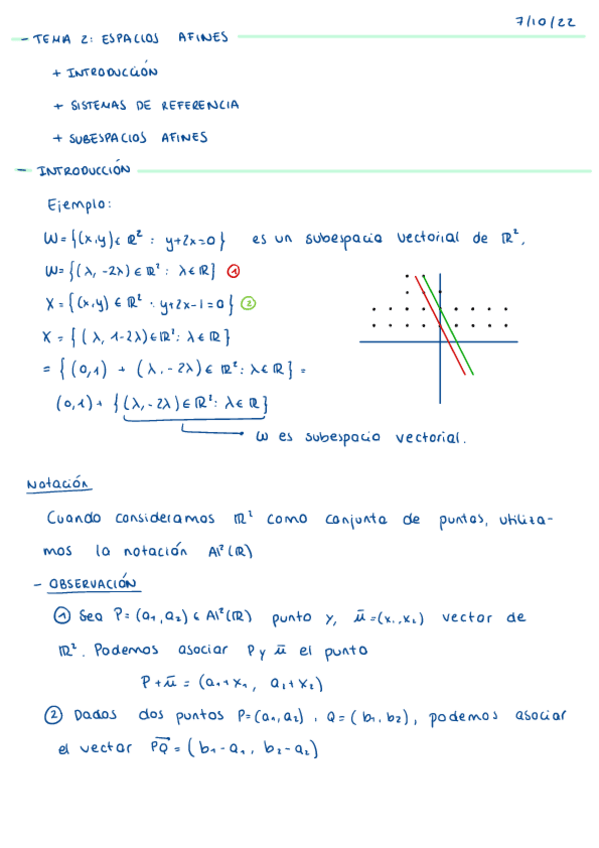 7/10/22
- TEMA 2: ESPACIOS AFINES
+ INTRODUCCIÓN
+ SISTEMAS DE REFERENCIA
+ SUBESPACIOS AFINES
- INTRODUCCIÓN
Ejemplo:
W = {(x,y) ∈ ℝ² : y+2x=0} es un subespacio vectorial de ℝ²,
W = {(λ, -2λ) ∈ ℝ² : λ ∈ ℝ} ①
X = {(x,y) ∈ ℝ² : y+2x-1=0} ②
X = {(λ, 1-2λ) ∈ ℝ² : λ ∈ ℝ}
= {(0,1) + (λ, -2λ) ∈ ℝ² : λ ∈ ℝ} =
(0,1) + {(λ, -2λ) ∈ ℝ² : λ ∈ ℝ}
W es subespacio vectorial.
Notación
Cuando consideramos ℝ² como conjunto de puntos, utiliza-
mos la notación A²(ℝ)
- OBSERVACIÓN
① Sea P = (a₁, a₂) ∈ A²(ℝ) punto y, ū = (x₁, x₂) vector de
ℝ². Podemos asociar P y ū el punto
P + ū = (a₁+x₁, a₁+x₂)
② Dados dos puntos P = (a₁, a₂), Q = (b₁, b₂), podemos asociar
el vector P͞Q = (b₁-a₁, b₂-a₂)